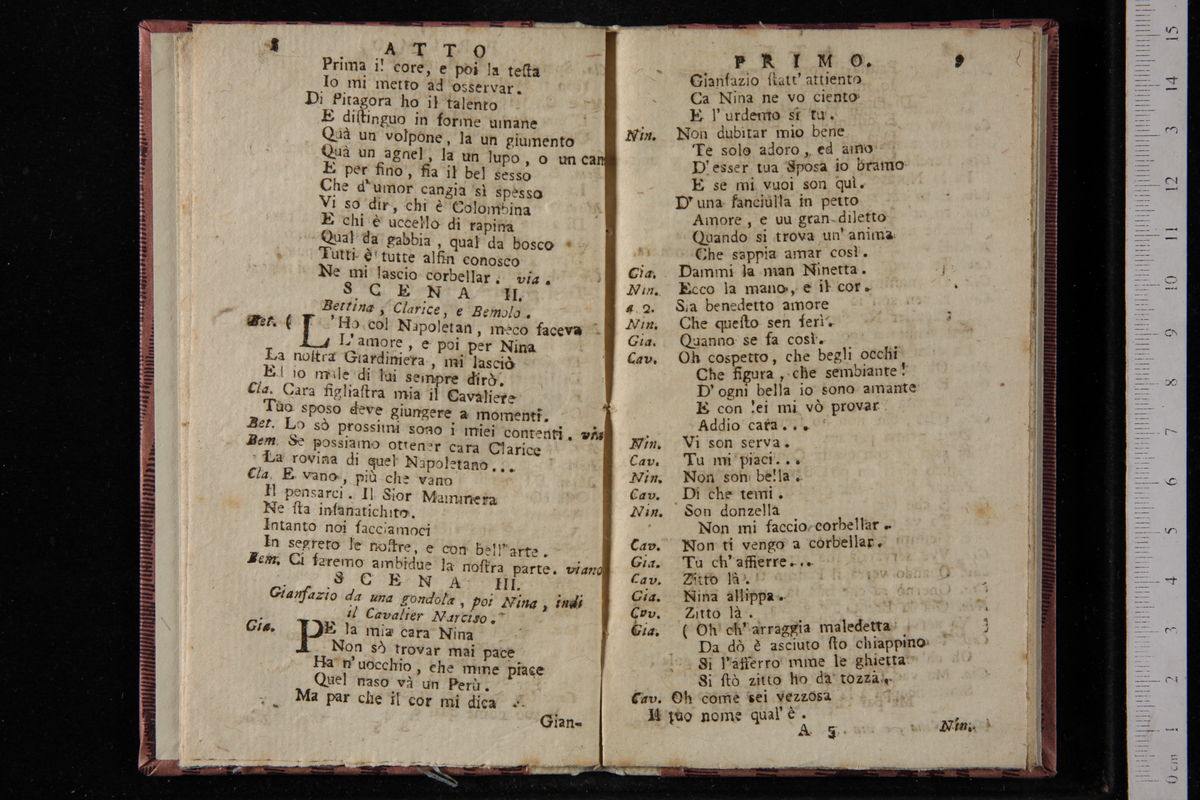 8 ATTO
Prima il core, e poi la teſta
Io mi metto ad osservar.
Di Pitagora ho il talento
E diſtinguo in forme umane
Quà un volpone, la un giumento
Quà un agnel, la un lupo, o un can
E per fino, fia il bel sesso
Che d'umor cangia sì spesso
Vi so dir, chi è Colombina
E chi è uccello di rapina
Qual da gabbia, qual da bosco
Tutti è tutte alfin conosco
Ne mi lascio corbellar. via.
SCENA II.
Bettina, Clarice, e Bemolo.
Bet. ( L'Ho col Napoletan, meco faceva
L'amore, e poi per Nina
La noſtra Giardiniera, mi lasciò
E io male di lui sempre dirò.
Cla. Cara figliaſtra mia il Cavaliere
Tuo sposo deve giungere a momenti.
Bet. Lo sò prossimi sono i miei contenti. via
Bem. Se possiamo ottener cara Clarice
La rovina di quel Napoletano...
Cla. E vano, più che vano
Il pensarci. Il Sior Mammera
Ne ſta infanatichito.
Intanto noi facciamoci
In segreto le noſtre, e con bell'arte.
Bem. Ci faremo ambidue la noſtra parte. viano
SCENA III.
Gianfazio da una gondola, poi Nina, indi
il Cavalier Narciso.
Gia. PE la mia cara Nina
Non sò trovar mai pace
Ha n'uocchio, che mme piace
Quel naso và un Perù.
Ma par che il cor mi dica
Gian-
PRIMO. 9
Gianfazio ſtatt'attiento
Ca Nina ne vo ciento
E l'urdemo si tu.
Nin. Non dubitar mio bene
Te solo adoro, ed amo
D'esser tua Sposa io bramo
E se mi vuoi son quì.
D'una fanciulla in petto
Amore, e uu gran diletto
Quando si trova un'anima
Che sappia amar così.
Gia. Dammi la man Ninetta.
Nin. Ecco la mano, e il cor.
a 2. Sia benedetto amore
Nin. Che queſto sen ferì.
Gia. Quanno se fa così.
Cav. Oh cospetto, che begli occhi
Che figura, che sembiante!
D'ogni bella io sono amante
E con lei mi vò provar
Addio cara...
Nin. Vi son serva.
Cav. Tu mi piaci...
Nin. Non son bella.
Cav. Di che temi.
Nin. Son donzella
Non mi faccio corbellar.
Cav. Non ti vengo a corbellar.
Gia. Tu ch'affierre...
Cav. Zitto là.
Gia. Nina allippa.
Cov. Zitto là.
Gia. ( Oh ch'arraggia maledetta
Da dò è asciuto ſto chiappino
Si l'afferro mme le ghietta
Si ſtò zitto ho da tozza.
Cav. Oh come sei vezzosa
Il tuo nome qual'è.
A 5 Nin.
0 cm 1 2 3 4 5 6 7 8 9 10 11 12 13 14 15